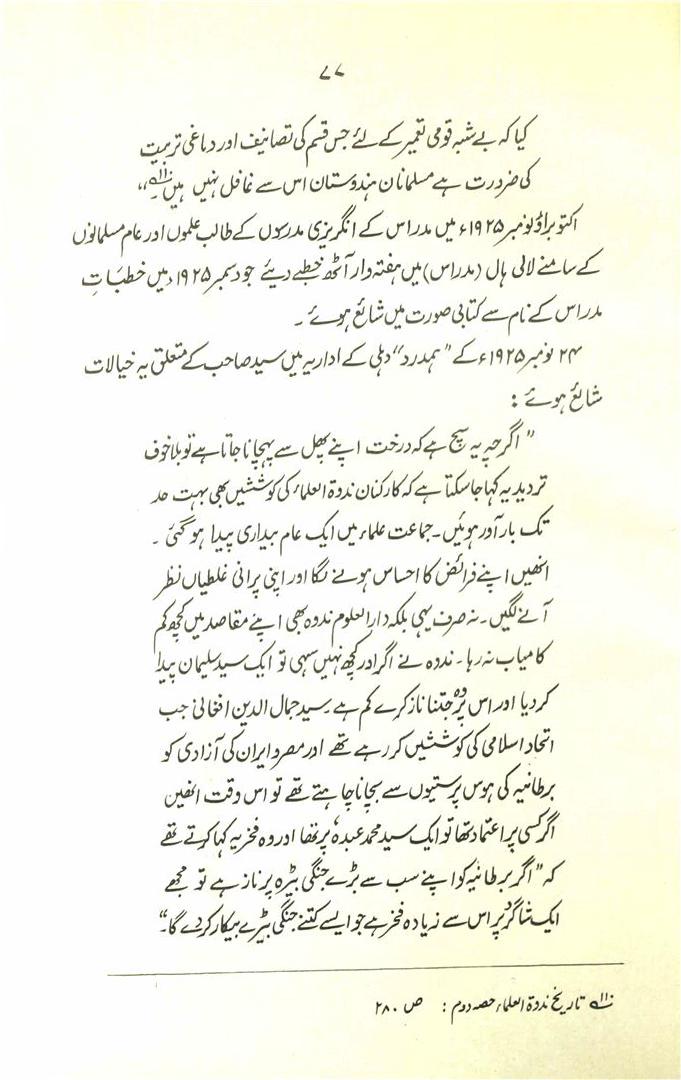 ۷۷
کیا کہ بے شبہ قومی تعمیر کے لئے جس قسم کی تصانیف اور دماغی تربیت
کی ضرورت ہے مسلمانان ہندوستان اس سے غافل نہیں ہیں۔"
اکتوبر اور نومبر ۱۹۲۵ء میں مدراس کے انگریزی مدرسوں کے طالب علموں اور عام مسلمانوں
کے سامنے لالی ہال (مدراس) میں ہفتہ وار آٹھ خطبے دیئے جو دسمبر ۱۹۲۵ء میں خطباتِ
مدراس کے نام سے کتابی صورت میں شائع ہوئے۔
۲۴ نومبر ۱۹۲۵ء کے "ہمدرد" دہلی کے اداریہ میں سید صاحب کے متعلق یہ خیالات
شائع ہوئے :
"اگرچہ یہ سچ ہے کہ درخت اپنے پھل سے پہچانا جاتا ہے تو بلاخوف
تردید یہ کہا جاسکتا ہے کہ کارکنان ندوۃ العلماء کی کوششیں بھی بہت حد
تک بارآور ہوئیں۔ جماعت علماء میں ایک عام بیداری پیدا ہوگئی۔
انھیں اپنے فرائض کا احساس ہونے لگا اور اپنی پرانی غلطیاں نظر
آنے لگیں۔ نہ صرف یہی بلکہ دارالعلوم ندوہ بھی اپنے مقاصد میں کچھ کم
کامیاب نہ رہا۔ ندوہ نے اگر اور کچھ نہیں سہی تو ایک سید سلیمان پیدا
کردیا اور اس پر وہ جتنا ناز کرے کم ہے سید جمال الدین افغانی جب
اتحاد اسلامی کی کوششیں کر رہے تھے اور مصر و ایران کی آزادی کو
برطانیہ کی ہوس پرستیوں سے بچانا چاہتے تھے تو اس وقت انھیں
اگر کسی پر اعتماد تھا تو ایک سید محمد عبدہٗ پر تھا اور وہ فخریہ کہا کرتے تھے
کہ "اگر برطانیہ کو اپنے سب سے بڑے جنگی بیڑہ پر ناز ہے تو مجھے
ایک شاگرد پر اس سے زیادہ فخر ہے جو ایسے کتنے جنگی بیڑے بیکار کردے گا۔"
تاریخ ندوۃ العلماء حصہ دوم : ص ۲۸۰